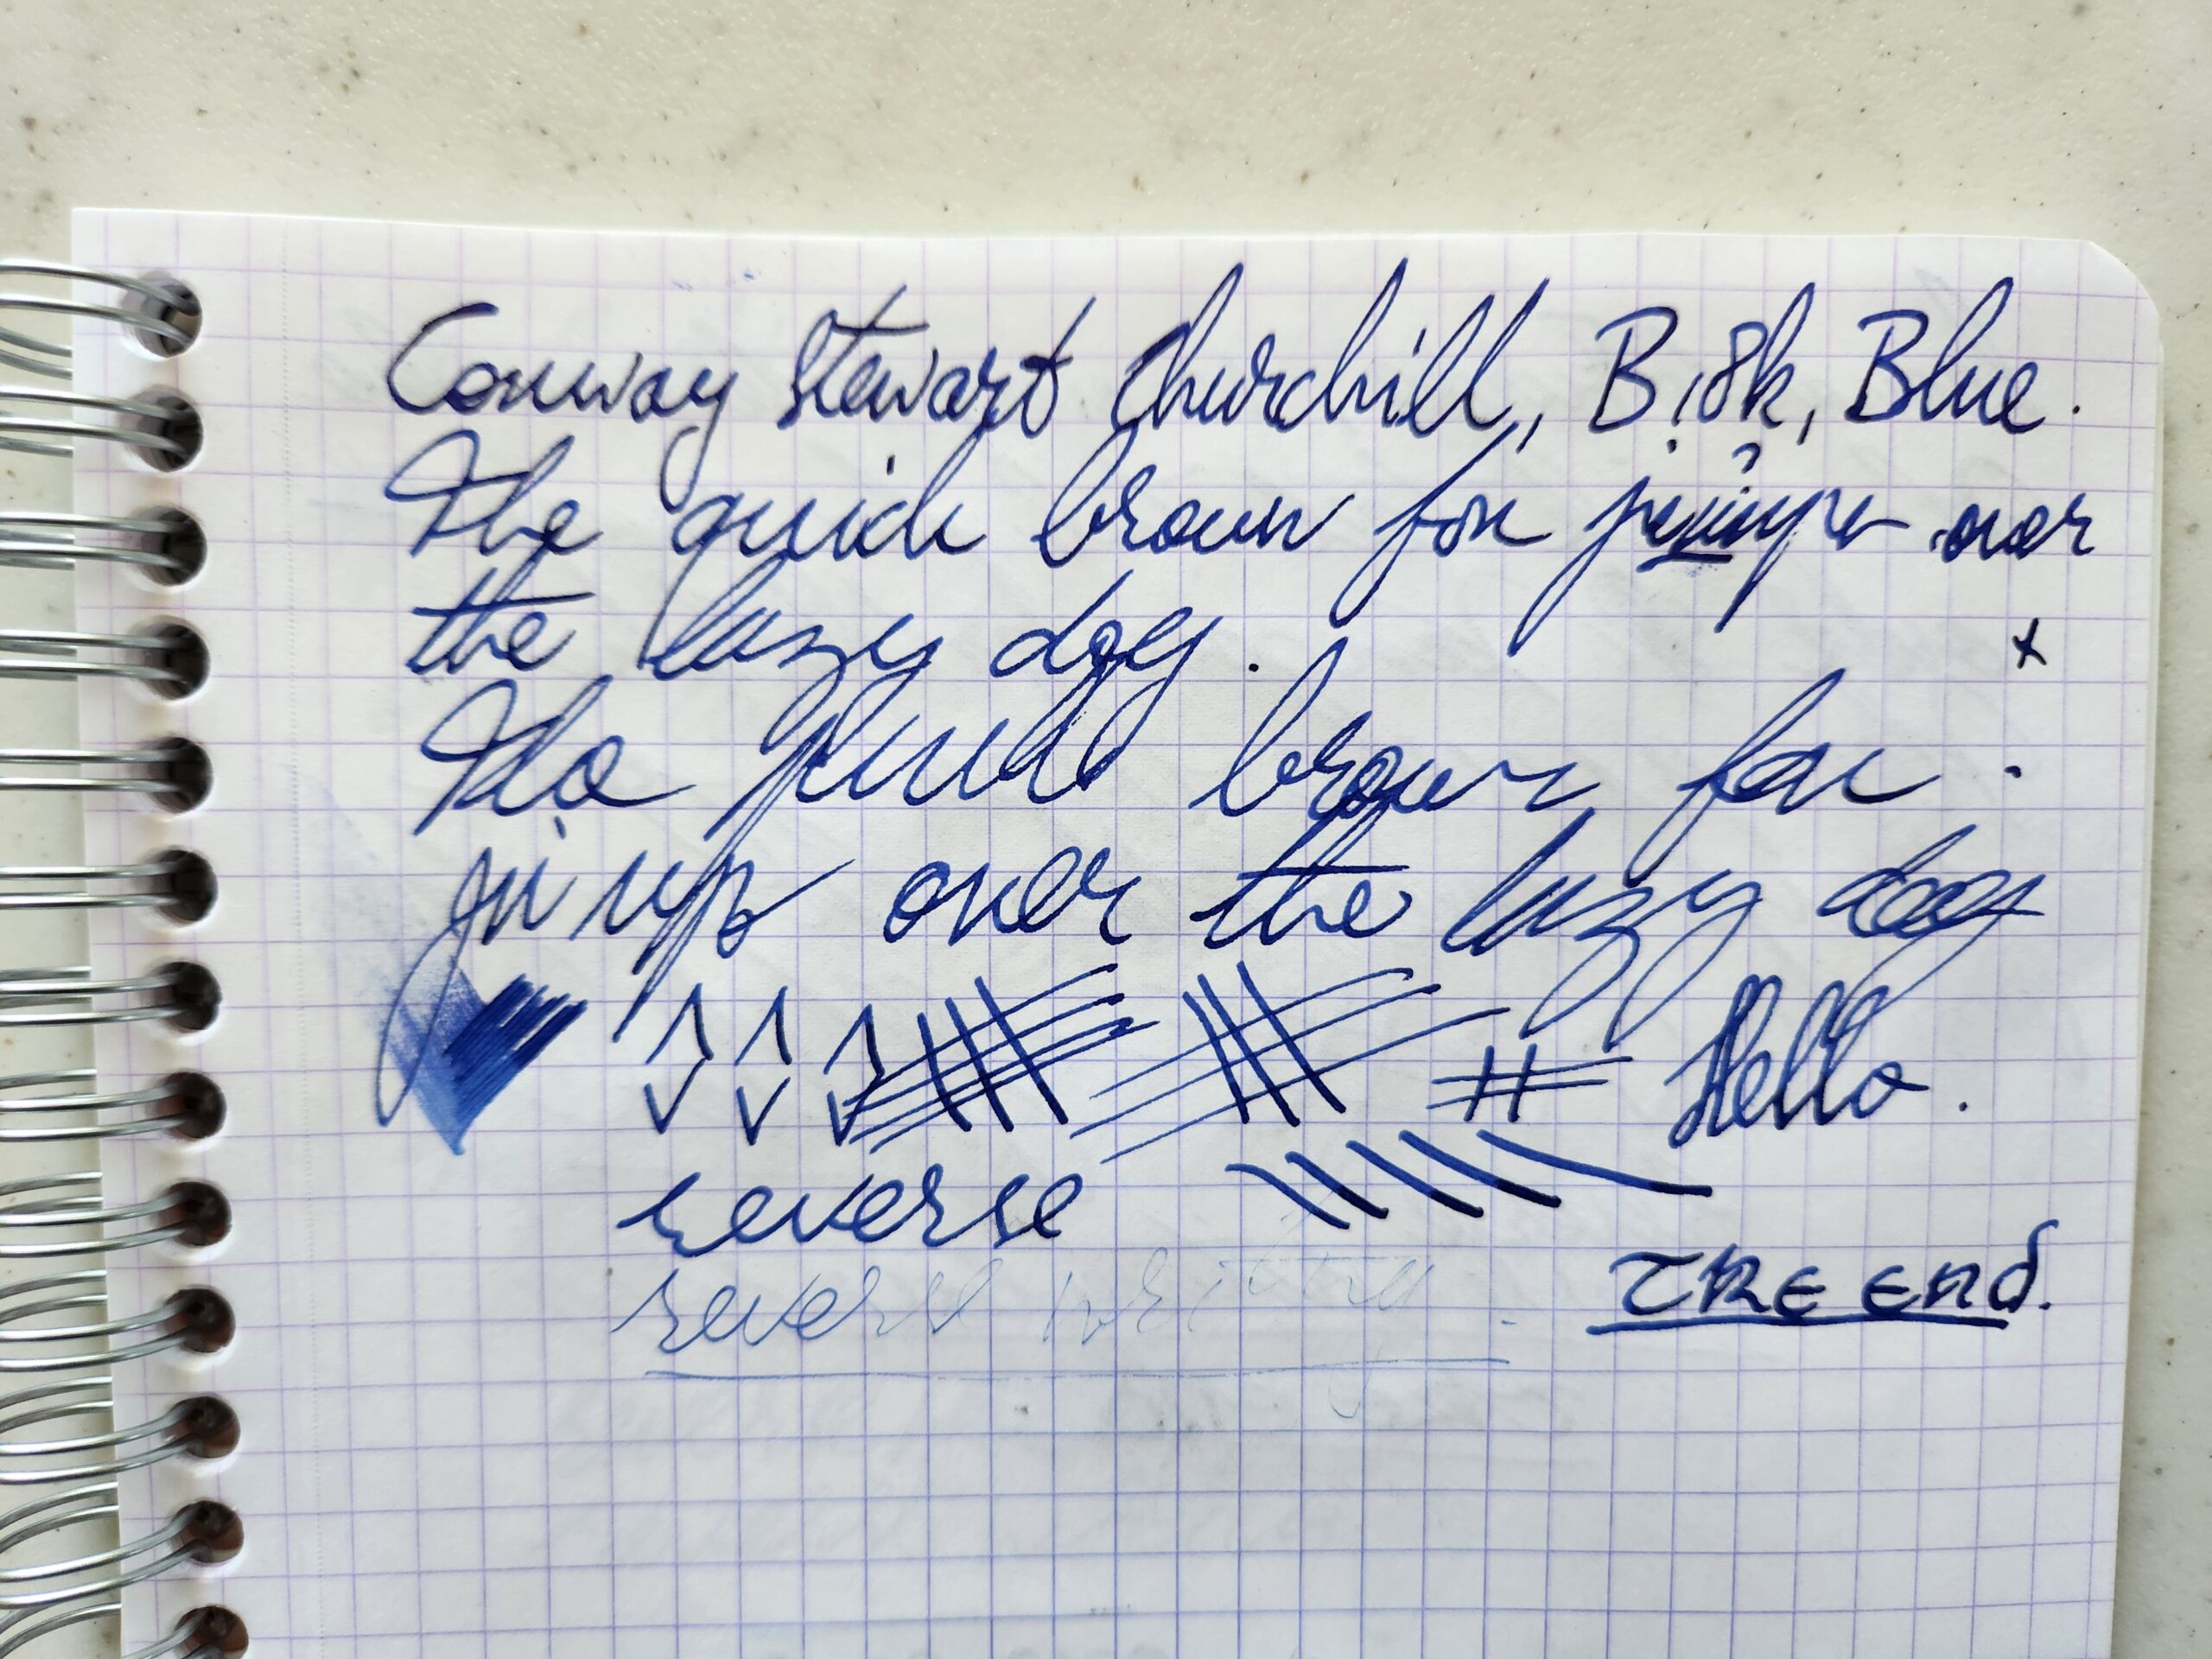 Conway Stewart Churchill, B, 18k, Blue.
The quick brown fox jumps over
the lazy dog.
The quick brown fox
jumps over the lazy dog
Hello.
reverse
reverse writing.
THE END.